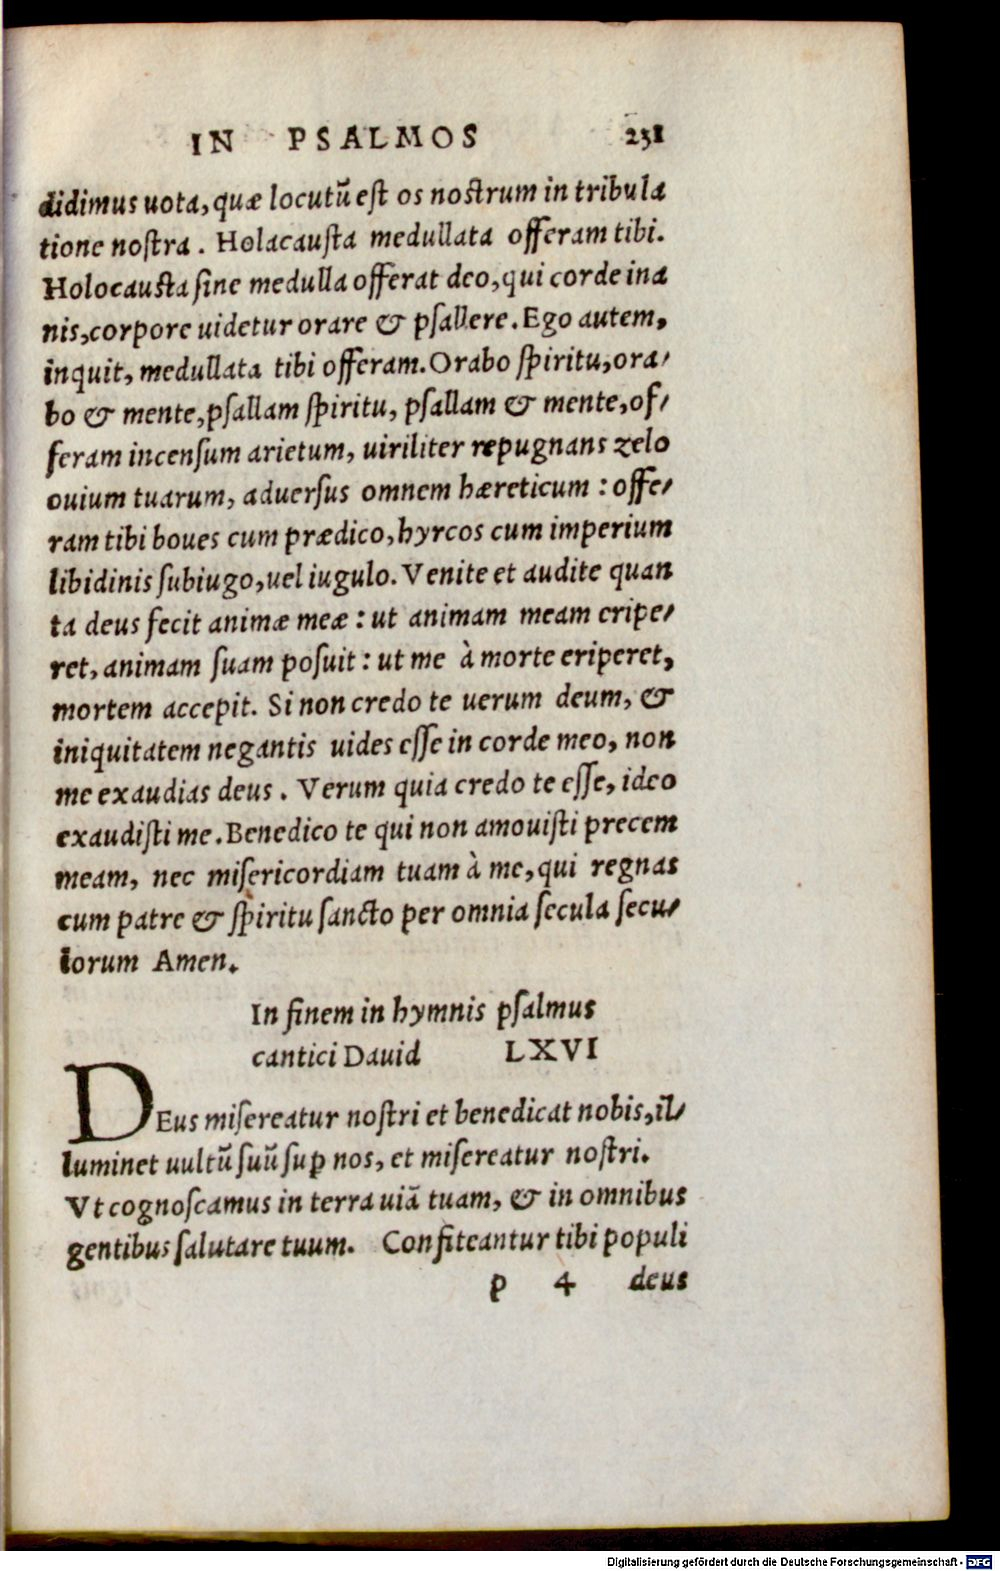 IN PSALMOS 231
didimus uota, quæ locutū est os nostrum in tribula
tione nostra. Holacausta medullata offeram tibi.
Holocausta sine medulla offerat deo, qui corde ina
nis, corpore uidetur orare & psallere. Ego autem,
inquit, medullata tibi offeram. Orabo spiritu, ora/
bo & mente, psallam spiritu, psallam & mente, of/
feram incensum arietum, uiriliter repugnans zelo
ouium tuarum, aduersus omnem hæreticum : offe/
ram tibi boues cum prædico, hyrcos cum imperium
libidinis subiugo, uel iugulo. Venite et audite quan
ta deus fecit animæ meæ : ut animam meam eripe/
ret, animam suam posuit : ut me à morte eriperet,
mortem accepit. Si non credo te uerum deum, &
iniquitatem negantis uides esse in corde meo, non
me exaudias deus. Verum quia credo te esse, ideo
exaudisti me. Benedico te qui non amouisti precem
meam, nec misericordiam tuam à me, qui regnas
cum patre & spiritu sancto per omnia secula secu/
lorum Amen.
In finem in hymnis psalmus
cantici Dauid LXVI
DEus misereatur nostri et benedicat nobis, il/
luminet uultū suū suꝑ nos, et misereatur nostri.
Vt cognoscamus in terra uiā tuam, & in omnibus
gentibus salutare tuum. Confiteantur tibi populi
p 4 deus
Digitalisierung gefördert durch die Deutsche Forschungsgemeinschaft - DFG